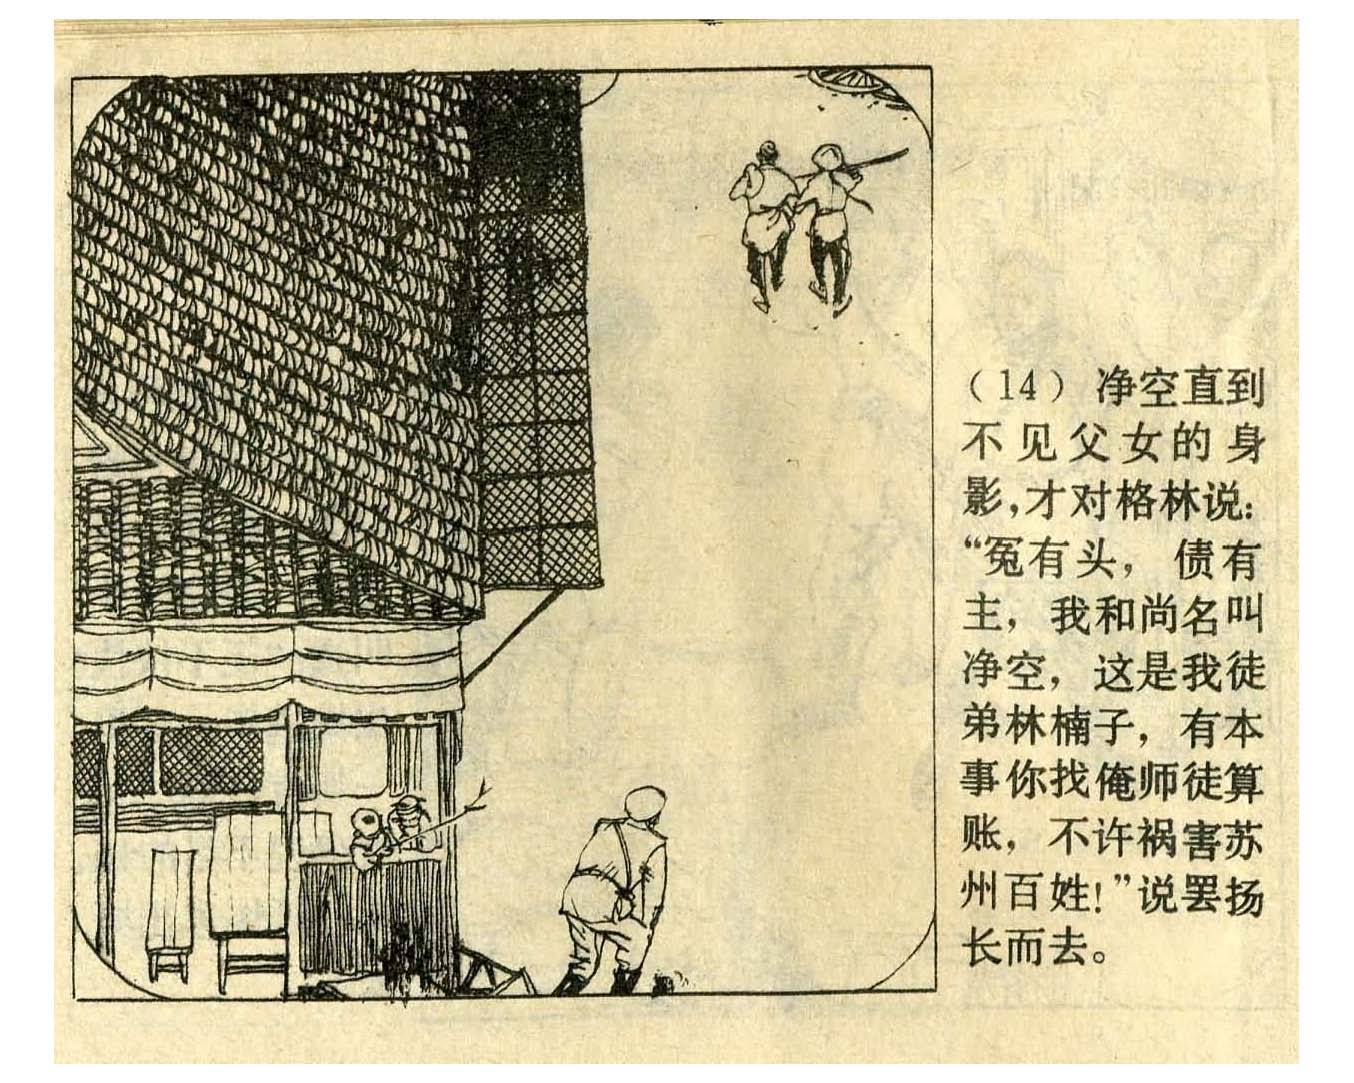 （14） 净空直到
不见父女的身
影，才对格林说：
“冤有头， 债有
主，我和尚名叫
净空，这是我徒
弟林楠子，有本
事你找俺师徒算
账，不许祸害苏
州百姓！”说罢扬
长而去。